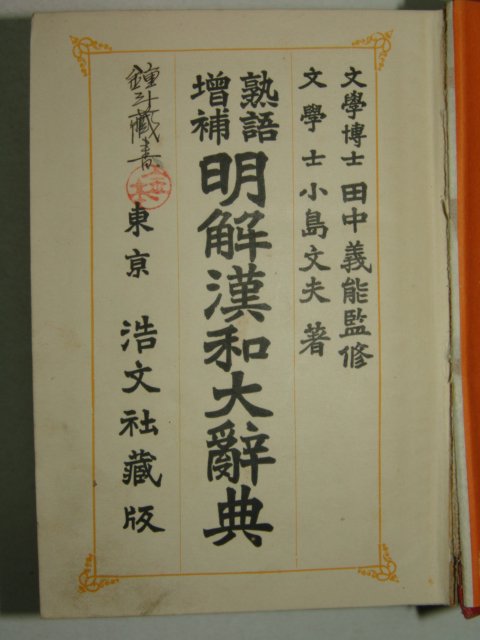 文學博士 田中義能監修
文學士 小島文夫 著
熟語
增補
明解漢和大辭典
東京 浩文社藏版
鐘斗藏書